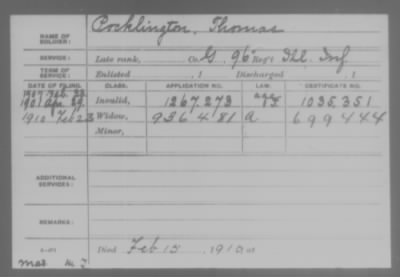 NAME OF SOLDIER: Pocklington, Thomas
SERVICE: Late rank, Co. G, 96" Reg't Ill. Inf.
TERM OF SERVICE: Enlisted , 1 Discharged , 1
DATE OF FILING. CLASS. APPLICATION NO. LAW. CERTIFICATE NO.
1907 Feb 23
1901 Apr 29 Invalid, 1267.273 1035.351
1910 Feb 23 Widow, 936481 a 699444
Minor,
ADDITIONAL SERVICES:
REMARKS:
Died Feb 15, 1910, at